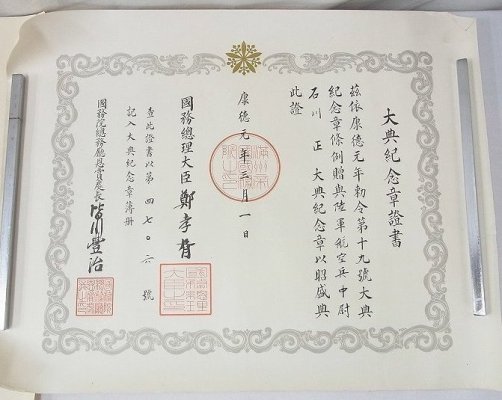 大典紀念章證書
茲依康德元年勅令第十九號大典
紀念章條例贈與陸軍航空兵中尉
石川 正 大典紀念章以昭盛典
此證
康德元年三月一日
國務總理大臣 鄭孝胥
查此證書以第四七〇六號
記入大典紀念章簿冊
國務院總務廳恩賞處長 皆川豐治